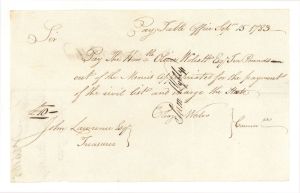 Pay Table Office Sept 15 1783
Sir
Pay the Honble Oliver Wolcott Esqr Ten Pounds
out of the Monies appropriated for the payment
of the civil list and charge the State
£10-
Eleazr Wales
Committee
John Lawrence Esqr
Treasurer